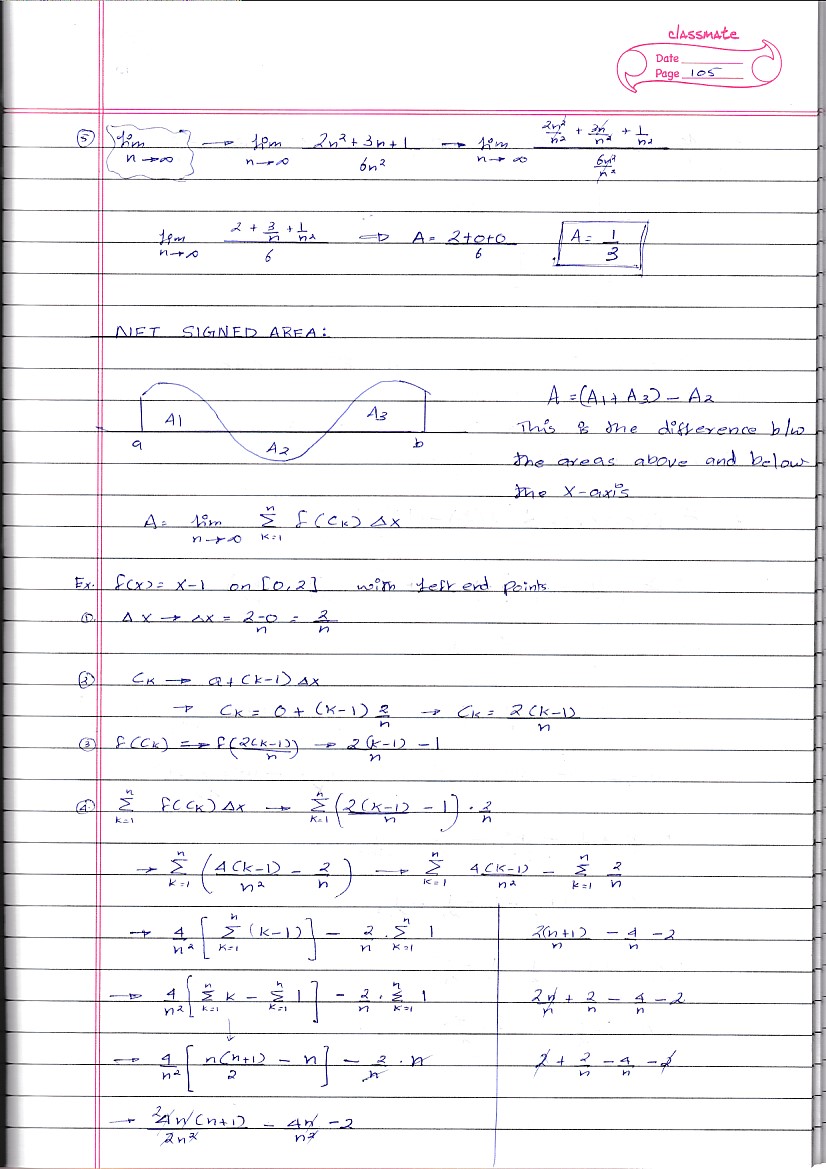 classmate
Date
Page 105
⑤ lim n→∞ → lim n→∞ (2n² + 3n + 1)/6n² → lim n→∞ (2n²/n² + 3n/n² + 1/n²)/(6n²/n²)
lim n→∞ (2 + 3/n + 1/n²)/6 ⇒ A = (2+0+0)/6 A = 1/3
NET SIGNED AREA:
A1 A2 A3
a b
A = (A1 + A3) - A2
This is the difference b/w
the areas above and below
the X-axis
A = lim n→∞ Σ k=1 n f(Ck) Δx
Ex. f(x) = x-1 on [0,2] with left end points
① Δx → Δx = (2-0)/n = 2/n
② Ck → a + (k-1) Δx
→ Ck = 0 + (k-1) 2/n → Ck = 2(k-1)/n
③ f(Ck) ⇒ f(2(k-1)/n) → 2(k-1)/n - 1
④ Σ k=1 n f(Ck) Δx → Σ k=1 n (2(k-1)/n - 1] · 2/n
→ Σ k=1 n (4(k-1)/n² - 2/n) → Σ k=1 n 4(k-1)/n² - Σ k=1 n 2/n
→ 4/n² [Σ k=1 n (k-1)] - 2/n · Σ k=1 n 1
→ 4/n² [Σ k=1 n k - Σ k=1 n 1] - 2/n · Σ k=1 n 1
→ 4/n² [n(n+1)/2 - n] - 2/n · n
→ ²4n(n+1)/2n² - 4n/n² - 2
2(n+1)/n - 4/n - 2
2n/n + 2/n - 4/n - 2
2 + 2/n - 4/n - 2